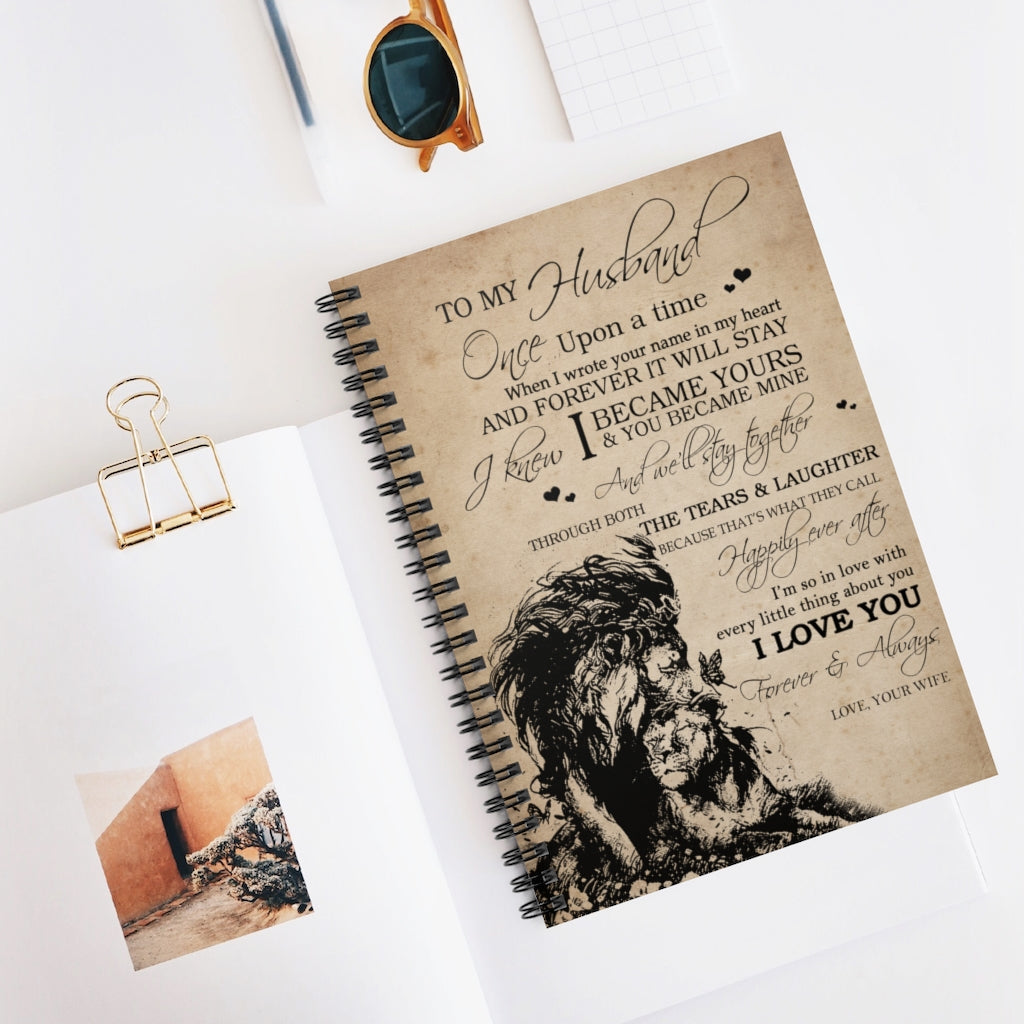 TO MY Husband
Once Upon a time
When I wrote your name in my heart
AND FOREVER IT WILL STAY
I knew I BECAME YOURS
& YOU BECAME MINE
And we'll stay together
THROUGH BOTH THE TEARS & LAUGHTER
BECAUSE THAT'S WHAT THEY CALL
Happily ever after
I'm so in love with
every little thing about you
I LOVE YOU
Forever & Always,
LOVE, YOUR WIFE